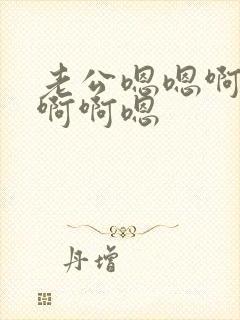 老公嗯嗯啊
啊啊嗯
丹增